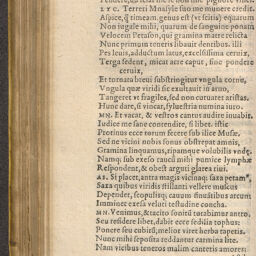 LYC. Terreri Menalysse suo me munere credit.
Aspice, q̃ timeam. genus est (ut scitis) equarum
Non iugale mihi, quarum de sanguine ponam
Velocem Petason, qui gramina matre relicta
Nunc primum teneris libauit dentibus. illi
Pes leuis, adductum latus, excelsissima ceruix,
Terga sedent, micat acre caput, sine pondere
ceruix,
Et tornata breui substringitur ungula cornu,
Ungula quæ viridi sic exultauit in aruo,
Tangeret ut fragiles, sed non curuaret aristas.
Hunc dare, si vincar, syluestria numina iuro.
MN. Et vacat, & vestros cantus audire iuuabit.
Iudice me sane contendite, si libet. istic
Protinus ecce torum fecere sub ilice Musæ.
Sed ne vicini nobis sonus obstrepat amnis,
Gramina linquamus, ripamque volubilis undę.
Namq; sub exeso raucũ mihi pumice lymphæ
Respondent, & obest arguti glarea riui.
AS. Si placet, antra magis vicinaq; saxa petam⁹,
Saxa quibus viridis stillanti vellere muscus
Dependet, scopulisq; cauum sinuatibus arcum
Imminet exesa veluti testudine concha.
MN. Venimus, & tacito sonitũ mutabimus antro.
Seu residere libet, dabit ecce sedilia tophus:
Ponere seu cubitũ, melior viret herba tapetis.
Nunc mihi seposita reddantur carmina lite.
Nam vicibus teneros malim cantetis amores: